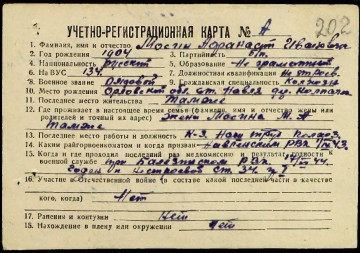 202
УЧЕТНО-РЕГИСТРАЦИОННАЯ КАРТА № А
1. Фамилия, имя и отчество Мосин Иванович
2. Год рождения 1904 3. Партийность б/п
4. Национальность русский 5. Образование Не грамотный
6. На ВУС 134 7. Должностная квалификация
8. Военное звание Рядовой 9. Гражданская специальность Колхозн
10. Место рождения Орловская обл. ст. Навля дер.
11. Последнее место жительства Там же
12. Где проживает в настоящее время семья (фамилия, имя и отчество жены или
родителей и точный их адрес) Жена Мосина М. А.
Там же
13. Последнее место работы и должность К-з Наш труд
14. Каким райгорвоенкоматом и когда призван Навлинским РВК 43
15. Когда и где проходил раз медкомиссию и результат годности к военной
службе при РВК 44
Годен к строевой ст. 34
16. Участие в Отечественной войне (в составе какой последней части и в качестве
кого, когда) Нет
17. Ранения и контузии Нет
18. Нахождение в плену или окружении Нет